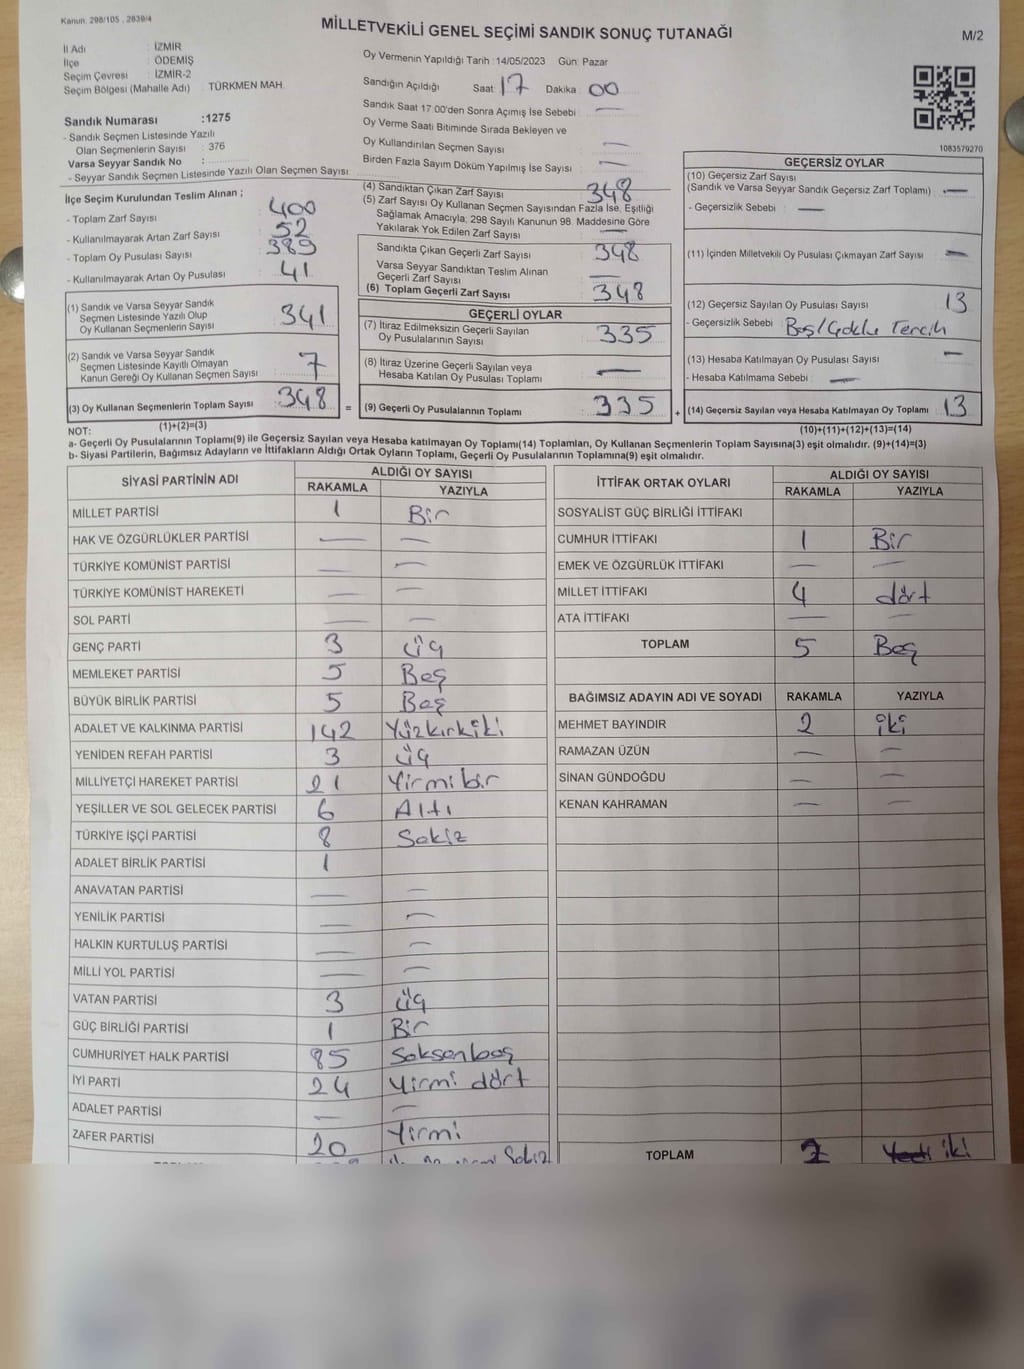 Kanun. 298/105 , 2839/4
MİLLETVEKİLİ GENEL SEÇİMİ SANDIK SONUÇ TUTANAĞI
M/2
İl Adı : İZMİR
İlçe : ÖDEMİŞ
Seçim Çevresi : İZMİR-2
Seçim Bölgesi (Mahalle Adı) : TÜRKMEN MAH.
Sandık Numarası :1275
- Sandık Seçmen Listesinde Yazılı
Olan Seçmenlerin Sayısı : 376
Varsa Seyyar Sandık No :
- Seyyar Sandık Seçmen Listesinde Yazılı Olan Seçmen Sayısı
Oy Vermenin Yapıldığı Tarih :14/05/2023 Gün: Pazar
Sandığın Açıldığı Saat 17 Dakika 00
Sandık Saat 17 00'den Sonra Açımış İse Sebebi —
Oy Verme Saati Bitiminde Sırada Bekleyen ve
Oy Kullandırılan Seçmen Sayısı : —
Birden Fazla Sayım Döküm Yapılmış İse Sayısı : —
1083579270
İlçe Seçim Kurulundan Teslim Alınan ;
- Toplam Zarf Sayısı : 400
- Kullanılmayarak Artan Zarf Sayısı : 52
- Toplam Oy Pusulası Sayısı : 389
- Kullanılmayarak Artan Oy Pusulası : 41
(1) Sandık ve Varsa Seyyar Sandık
Seçmen Listesinde Yazılı Olup
Oy Kullanan Seçmenlerin Sayısı : 341
(2) Sandık ve Varsa Seyyar Sandık
Seçmen Listesinde Kayıtlı Olmayan
Kanun Gereği Oy Kullanan Seçmen Sayısı : 7
(3) Oy Kullanan Seçmenlerin Toplam Sayısı : 348
(1)+(2)=(3)
(4) Sandıktan Çıkan Zarf Sayısı : 348
(5) Zarf Sayısı Oy Kullanan Seçmen Sayısından Fazla İse, Eşitliği
Sağlamak Amacıyla; 298 Sayılı Kanunun 98. Maddesine Göre
Yakılarak Yok Edilen Zarf Sayısı : —
Sandıkta Çıkan Geçerli Zarf Sayısı : 348
Varsa Seyyar Sandıktan Teslim Alınan
Geçerli Zarf Sayısı : —
(6) Toplam Geçerli Zarf Sayısı : 348
GEÇERLİ OYLAR
(7) İtiraz Edilmeksizin Geçerli Sayılan
Oy Pusulalarının Sayısı : 335
(8) İtiraz Üzerine Geçerli Sayılan veya
Hesaba Katılan Oy Pusulası Toplamı : —
= (9) Geçerli Oy Pusulalarının Toplamı : 335 +
GEÇERSİZ OYLAR
(10) Geçersiz Zarf Sayısı
(Sandık ve Varsa Seyyar Sandık Geçersiz Zarf Toplamı) : —
- Geçersizlik Sebebi : —
(11) İçinden Milletvekili Oy Pusulası Çıkmayan Zarf Sayısı : —
(12) Geçersiz Sayılan Oy Pusulası Sayısı : 13
- Geçersizlik Sebebi : Boş/Çoklu Tercih
(13) Hesaba Katılmayan Oy Pusulası Sayısı : —
- Hesaba Katılmama Sebebi : —
(14) Geçersiz Sayılan veya Hesaba Katılmayan Oy Toplamı : 13
(10)+(11)+(12)+(13)=(14)
NOT:
a- Geçerli Oy Pusulalarının Toplamı(9) ile Geçersiz Sayılan veya Hesaba katılmayan Oy Toplamı(14) Toplamları, Oy Kullanan Seçmenlerin Toplam Sayısına(3) eşit olmalıdır. (9)+(14)=(3)
b- Siyasi Partilerin, Bağımsız Adayların ve İttifakların Aldığı Ortak Oyların Toplamı, Geçerli Oy Pusulalarının Toplamına(9) eşit olmalıdır.
SİYASİ PARTİNİN ADI ALDIĞI OY SAYISI
RAKAMLA YAZIYLA
MİLLET PARTİSİ 1 Bir
HAK VE ÖZGÜRLÜKLER PARTİSİ — —
TÜRKİYE KOMÜNİST PARTİSİ — —
TÜRKİYE KOMÜNİST HAREKETİ — —
SOL PARTİ — —
GENÇ PARTİ 3 üç
MEMLEKET PARTİSİ 5 Beş
BÜYÜK BİRLİK PARTİSİ 5 Beş
ADALET VE KALKINMA PARTİSİ 142 Yüzkırkiki
YENİDEN REFAH PARTİSİ 3 üç
MİLLİYETÇİ HAREKET PARTİSİ 21 Yirmi bir
YEŞİLLER VE SOL GELECEK PARTİSİ 6 Altı
TÜRKİYE İŞÇİ PARTİSİ 8 Sekiz
ADALET BİRLİK PARTİSİ 1
ANAVATAN PARTİSİ — —
YENİLİK PARTİSİ — —
HALKIN KURTULUŞ PARTİSİ — —
MİLLİ YOL PARTİSİ — —
VATAN PARTİSİ 3 üç
GÜÇ BİRLİĞİ PARTİSİ 1 Bir
CUMHURİYET HALK PARTİSİ 85 Seksenbeş
İYİ PARTİ 24 Yirmi dört
ADALET PARTİSİ — —
ZAFER PARTİSİ 20 Yirmi
Sekiz
İTTİFAK ORTAK OYLARI ALDIĞI OY SAYISI
RAKAMLA YAZIYLA
SOSYALİST GÜÇ BİRLİĞİ İTTİFAKI
CUMHUR İTTİFAKI 1 Bir
EMEK VE ÖZGÜRLÜK İTTİFAKI — —
MİLLET İTTİFAKI 4 dört
ATA İTTİFAKI — —
TOPLAM 5 Beş
BAĞIMSIZ ADAYIN ADI VE SOYADI RAKAMLA YAZIYLA
MEHMET BAYINDIR 2 iki
RAMAZAN ÜZÜN — —
SİNAN GÜNDOĞDU — —
KENAN KAHRAMAN — —
TOPLAM 2 Yedi iki